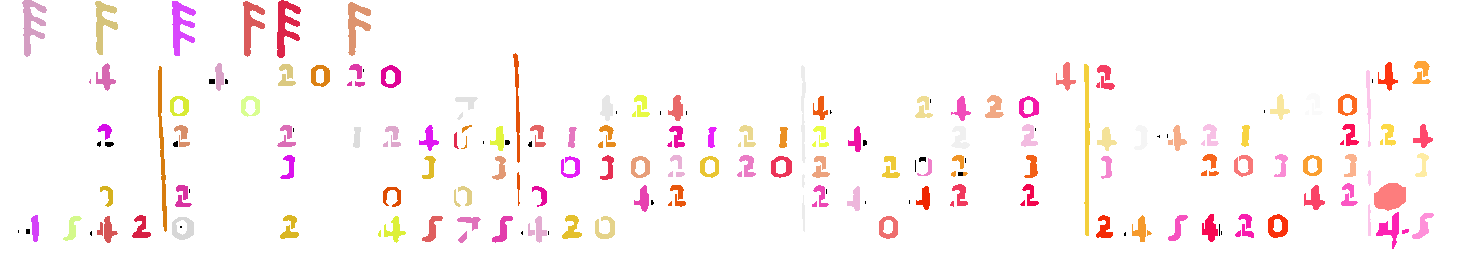 4 4 2 0 2 0 4 2 4 2
0 0 7 4 2 4 4 2 4 2 0 4 2 0
2 2 2 1 2 4 6 4 2 1 2 2 1 2 1 2 4 2 2 4 3 4 2 1 2 2 4
3 3 3 0 3 0 2 0 2 0 2 2 0 2 3 3 2 0 3 0 3 3
3 2 0 0 0 4 2 2 4 4 2 2 4 2
4 5 4 2 0 2 4 5 7 5 4 2 0 0 2 4 5 4 2 0 4 5